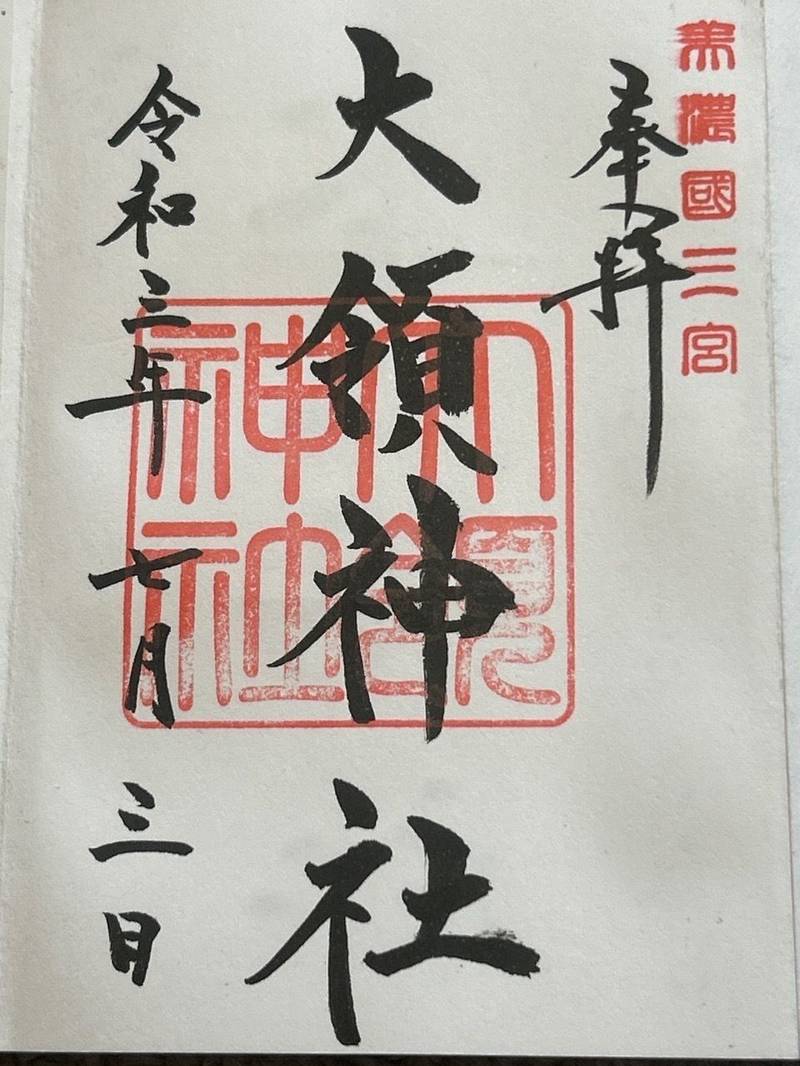 美濃國二宮
奉拝
大領神社
大領神社
令和三年七月三日